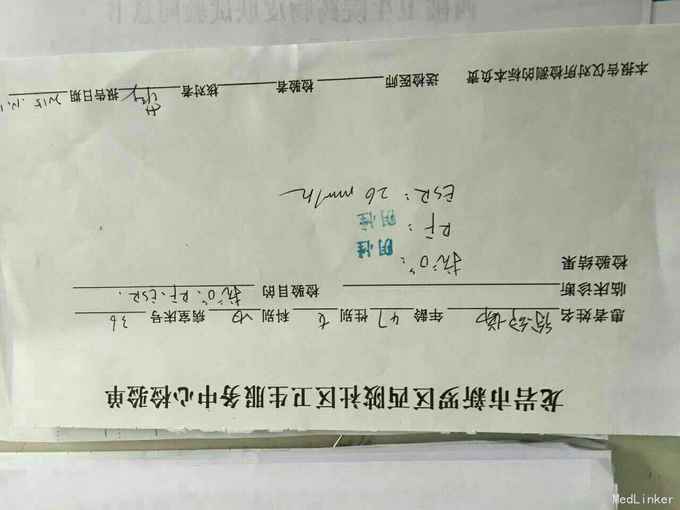 龙岩市新罗区西陂社区卫生服务中心检验单
患者姓名 年龄 47 性别 女 科别 内 病室床号 36
临床诊断 检验目的 抗"O"、RF、ESR.
检验结果
抗"O": 阴性
RF: 阴性
ESR: 26 mm/h
本报告仅对所检测的标本负责 送检医师 检验者 核对者 报告日期
MedLinker